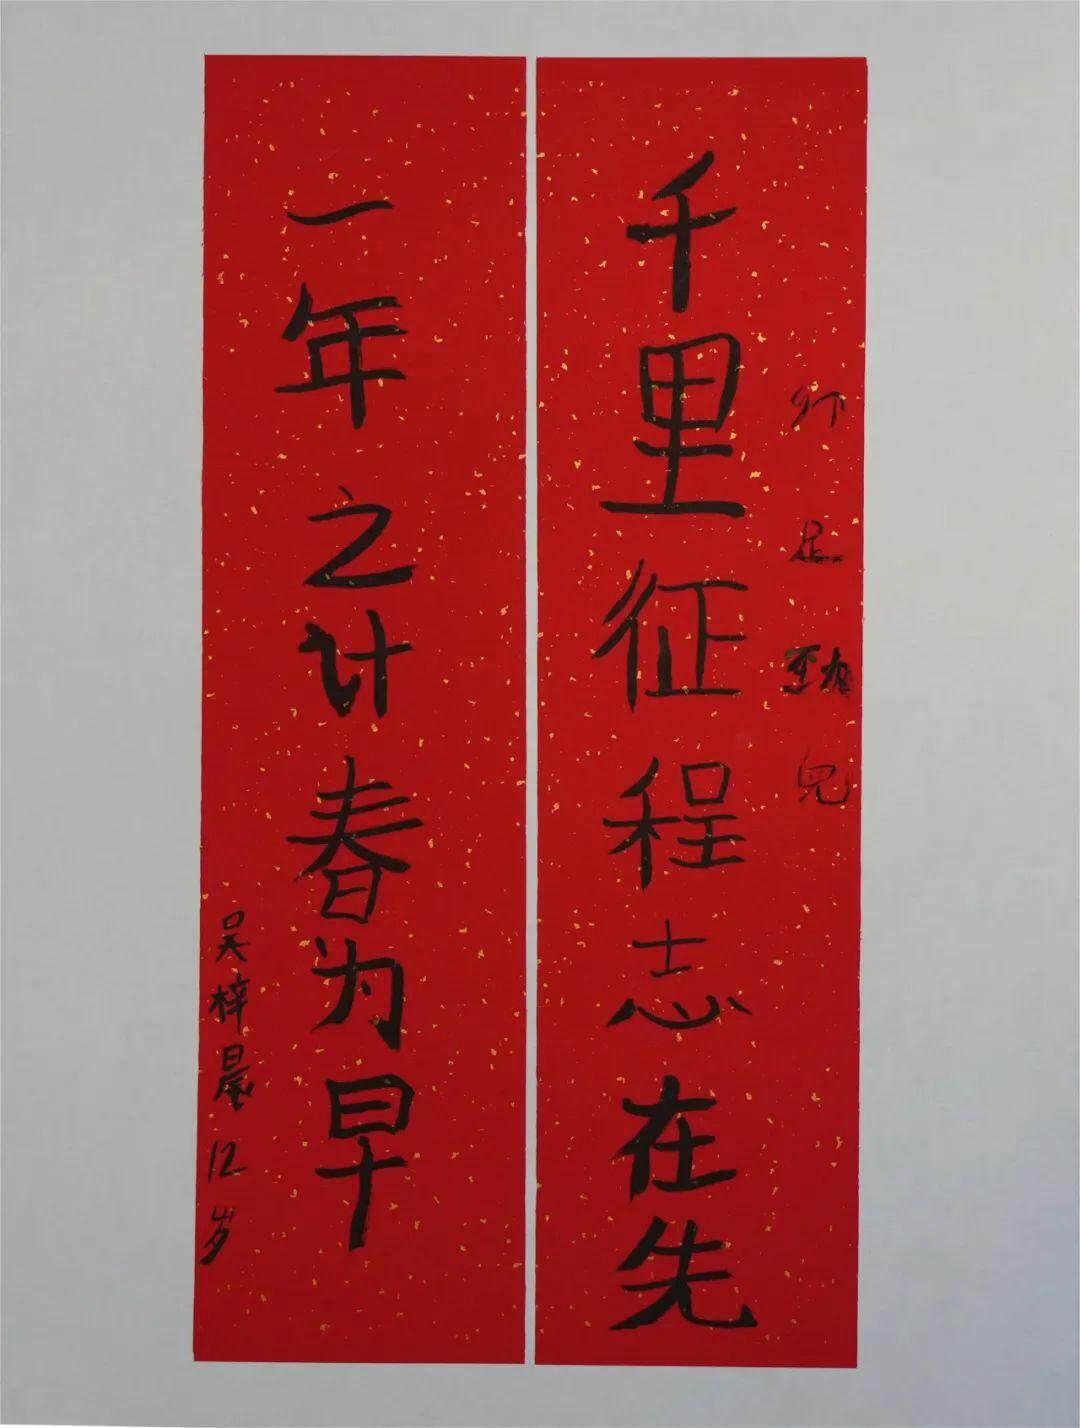 千里征程志在先
一年之计春为早
吴梓晨12岁